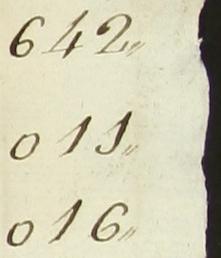 642"
011"
016"